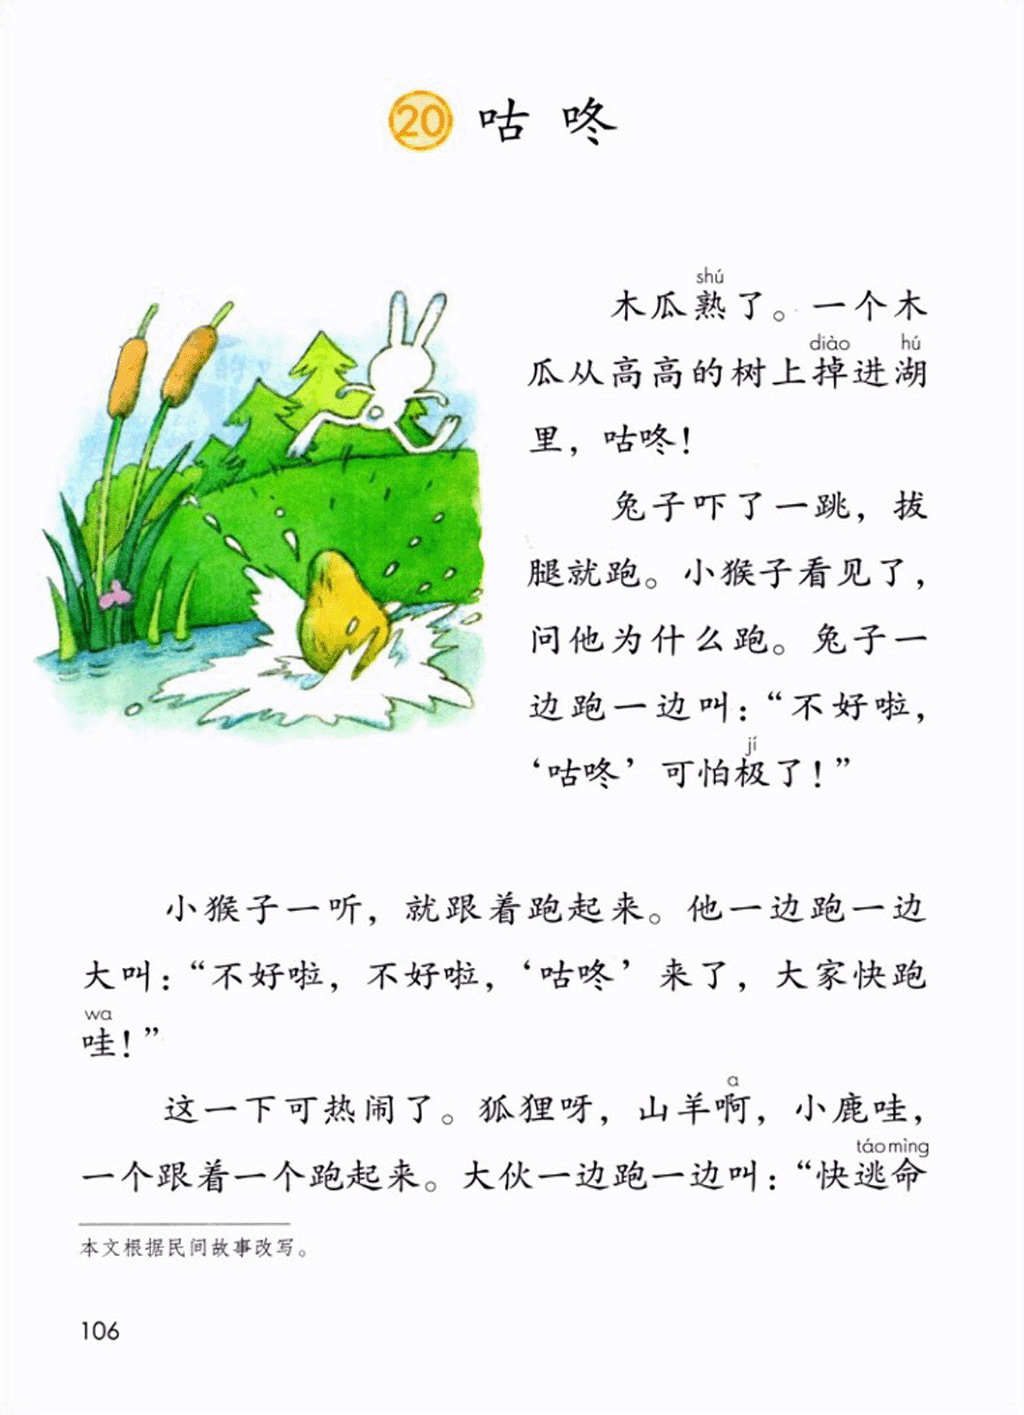 20 咕咚
shú
木瓜熟了。一个木
diào hú
瓜从高高的树上掉进湖
里，咕咚！
兔子吓了一跳，拔
腿就跑。小猴子看见了，
问他为什么跑。兔子一
边跑一边叫：“不好啦，
jí
‘咕咚’可怕极了！”
小猴子一听，就跟着跑起来。他一边跑一边
大叫：“不好啦，不好啦，‘咕咚’来了，大家快跑
wa
哇！”
a
这一下可热闹了。狐狸呀，山羊啊，小鹿哇，
táo mìng
一个跟着一个跑起来。大伙一边跑一边叫：“快逃命
本文根据民间故事改写。
106